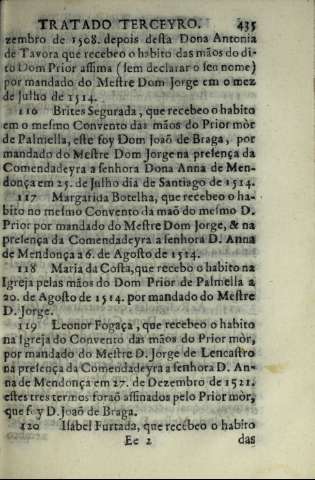 TRATADO TERCEYRO. 435
zembro de 1508. depois desta Dona Antonia
de Tavora que recebeo o habito das mãos do di-
to Dom Prior assima (sem declarar o seu nome)
por mandado do Mestre Dom Jorge em o mez
de Julho de 1514.
110 Brites Segurada, que recebeo o habito
em o mesmo Convento das mãos do Prior mòr
de Palmella, este foy Dom Joaõ de Braga, por
mandado do Mestre Dom Jorge na presença da
Comendadeyra a senhora Dona Anna de Men-
donça em 25. de Julho dia de Santiago de 1514.
117 Margarida Botelha, que recebeo o ha-
bito no mesmo Convento da maõ do mesmo D.
Prior por mandado do Mestre Dom Jorge, & na
presença da Comendadeyra a senhora D. Anna
de Mendonça a 6. de Agosto de 1514.
118 Maria da Costa, que recebo o habito na
Igreja pelas mãos do Dom Prior de Palmella a
20. de Agosto de 1514. por mandado do Mestre
D. Jorge.
119 Leonor Fogaça, que recebeo o habito
na Igreja do Convento das mãos do Prior mòr,
por mandado do Mestre D. Jorge de Lencastro
na presença da Comendadeyra a senhora D. An-
na de Mendonça em 27. de Dezembro de 1521.
estes tres termos foraõ assinados pelo Prior mòr,
que foy D. Joaõ de Braga.
120 Isabel Furtada, que recebeo o habito
Ee 2 das